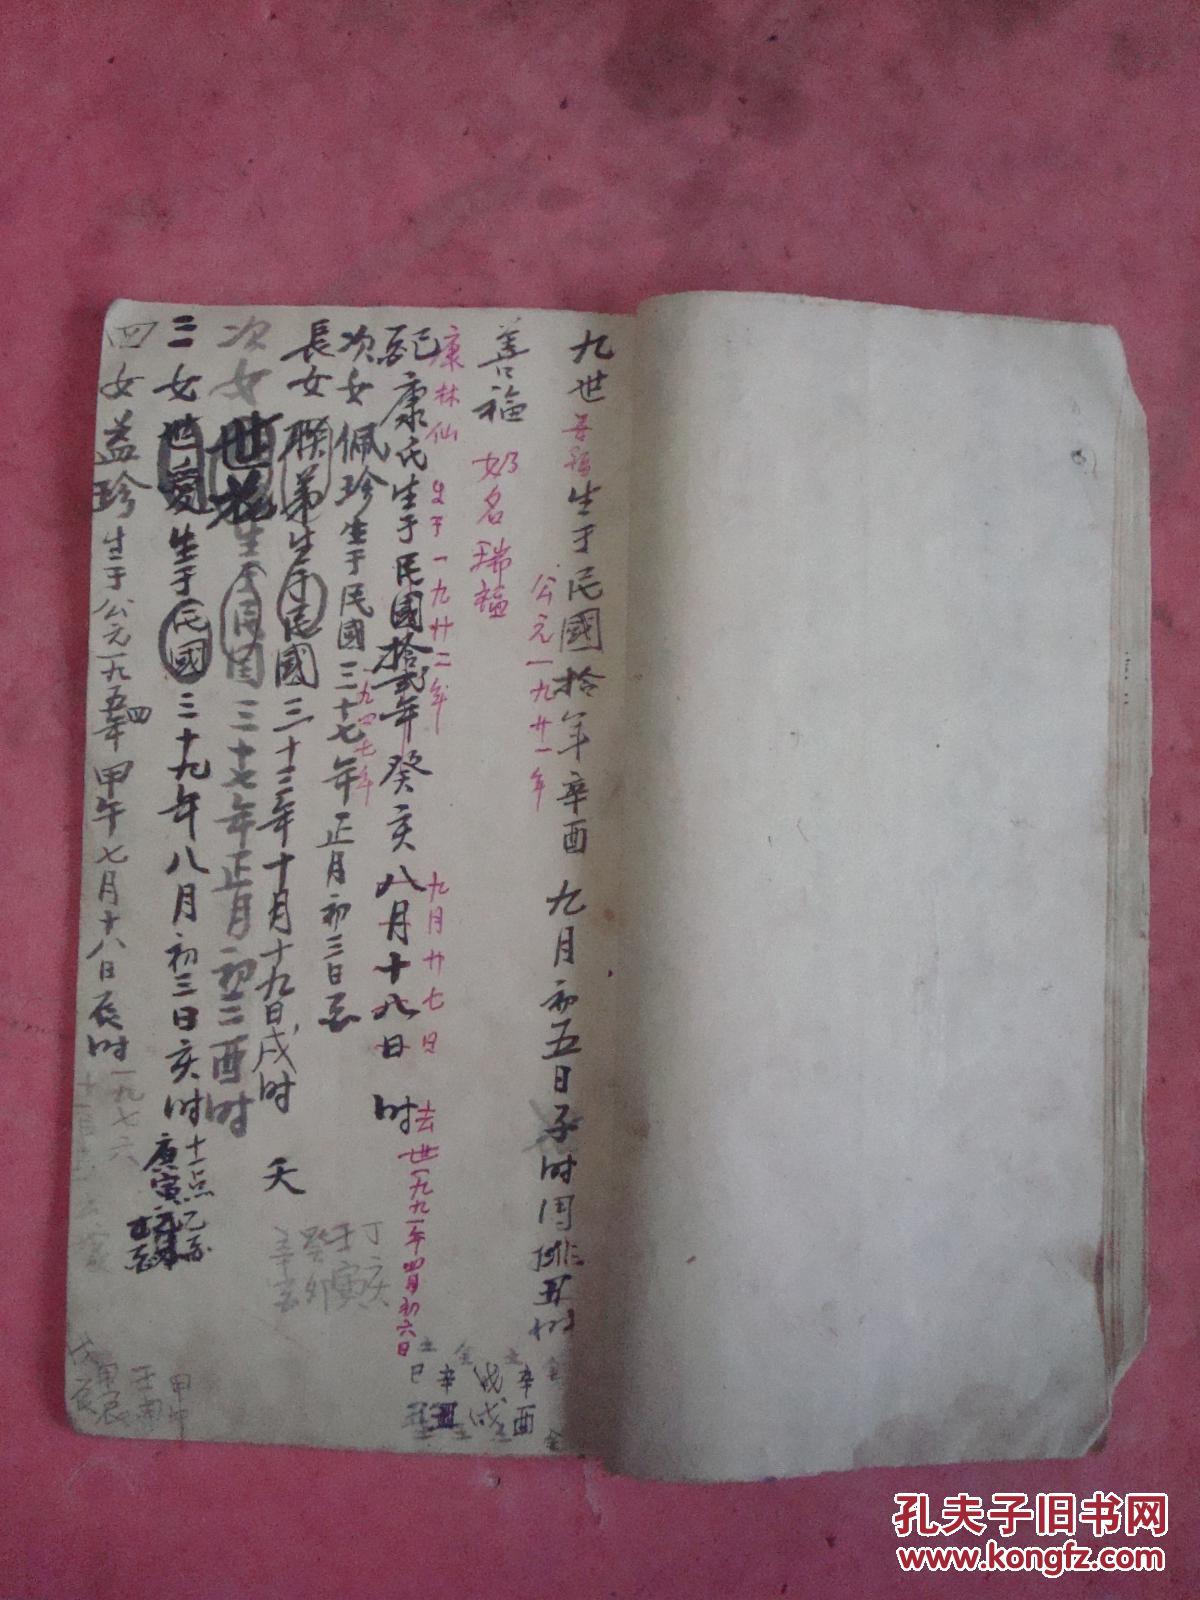 九世善福生于民國拾年辛酉九月初五日子时周排丑时
公元一九廿一年
善福 奶名瑞福
康林仙 生于一九廿二年 九月廿七日 去世一九九一年四月初六日
配康氏生于民國拾弍年癸亥八月十九日 时
次女佩珍生于民國三十七年正月初三日
一九四七年
長女联弟生于民國三十三年十月十九日戌时 天
次女世花生于民国三十七年正月初二酉时
三女世爱生于民國三十九年八月初三日亥时
十一点
庚寅
四女益珍生于公元一九五四年甲午七月十八日辰时
一九七六
丁亥
壬寅
癸卯
辛酉
戊戌
辛丑
孔夫子旧书网
www.kongfz.com